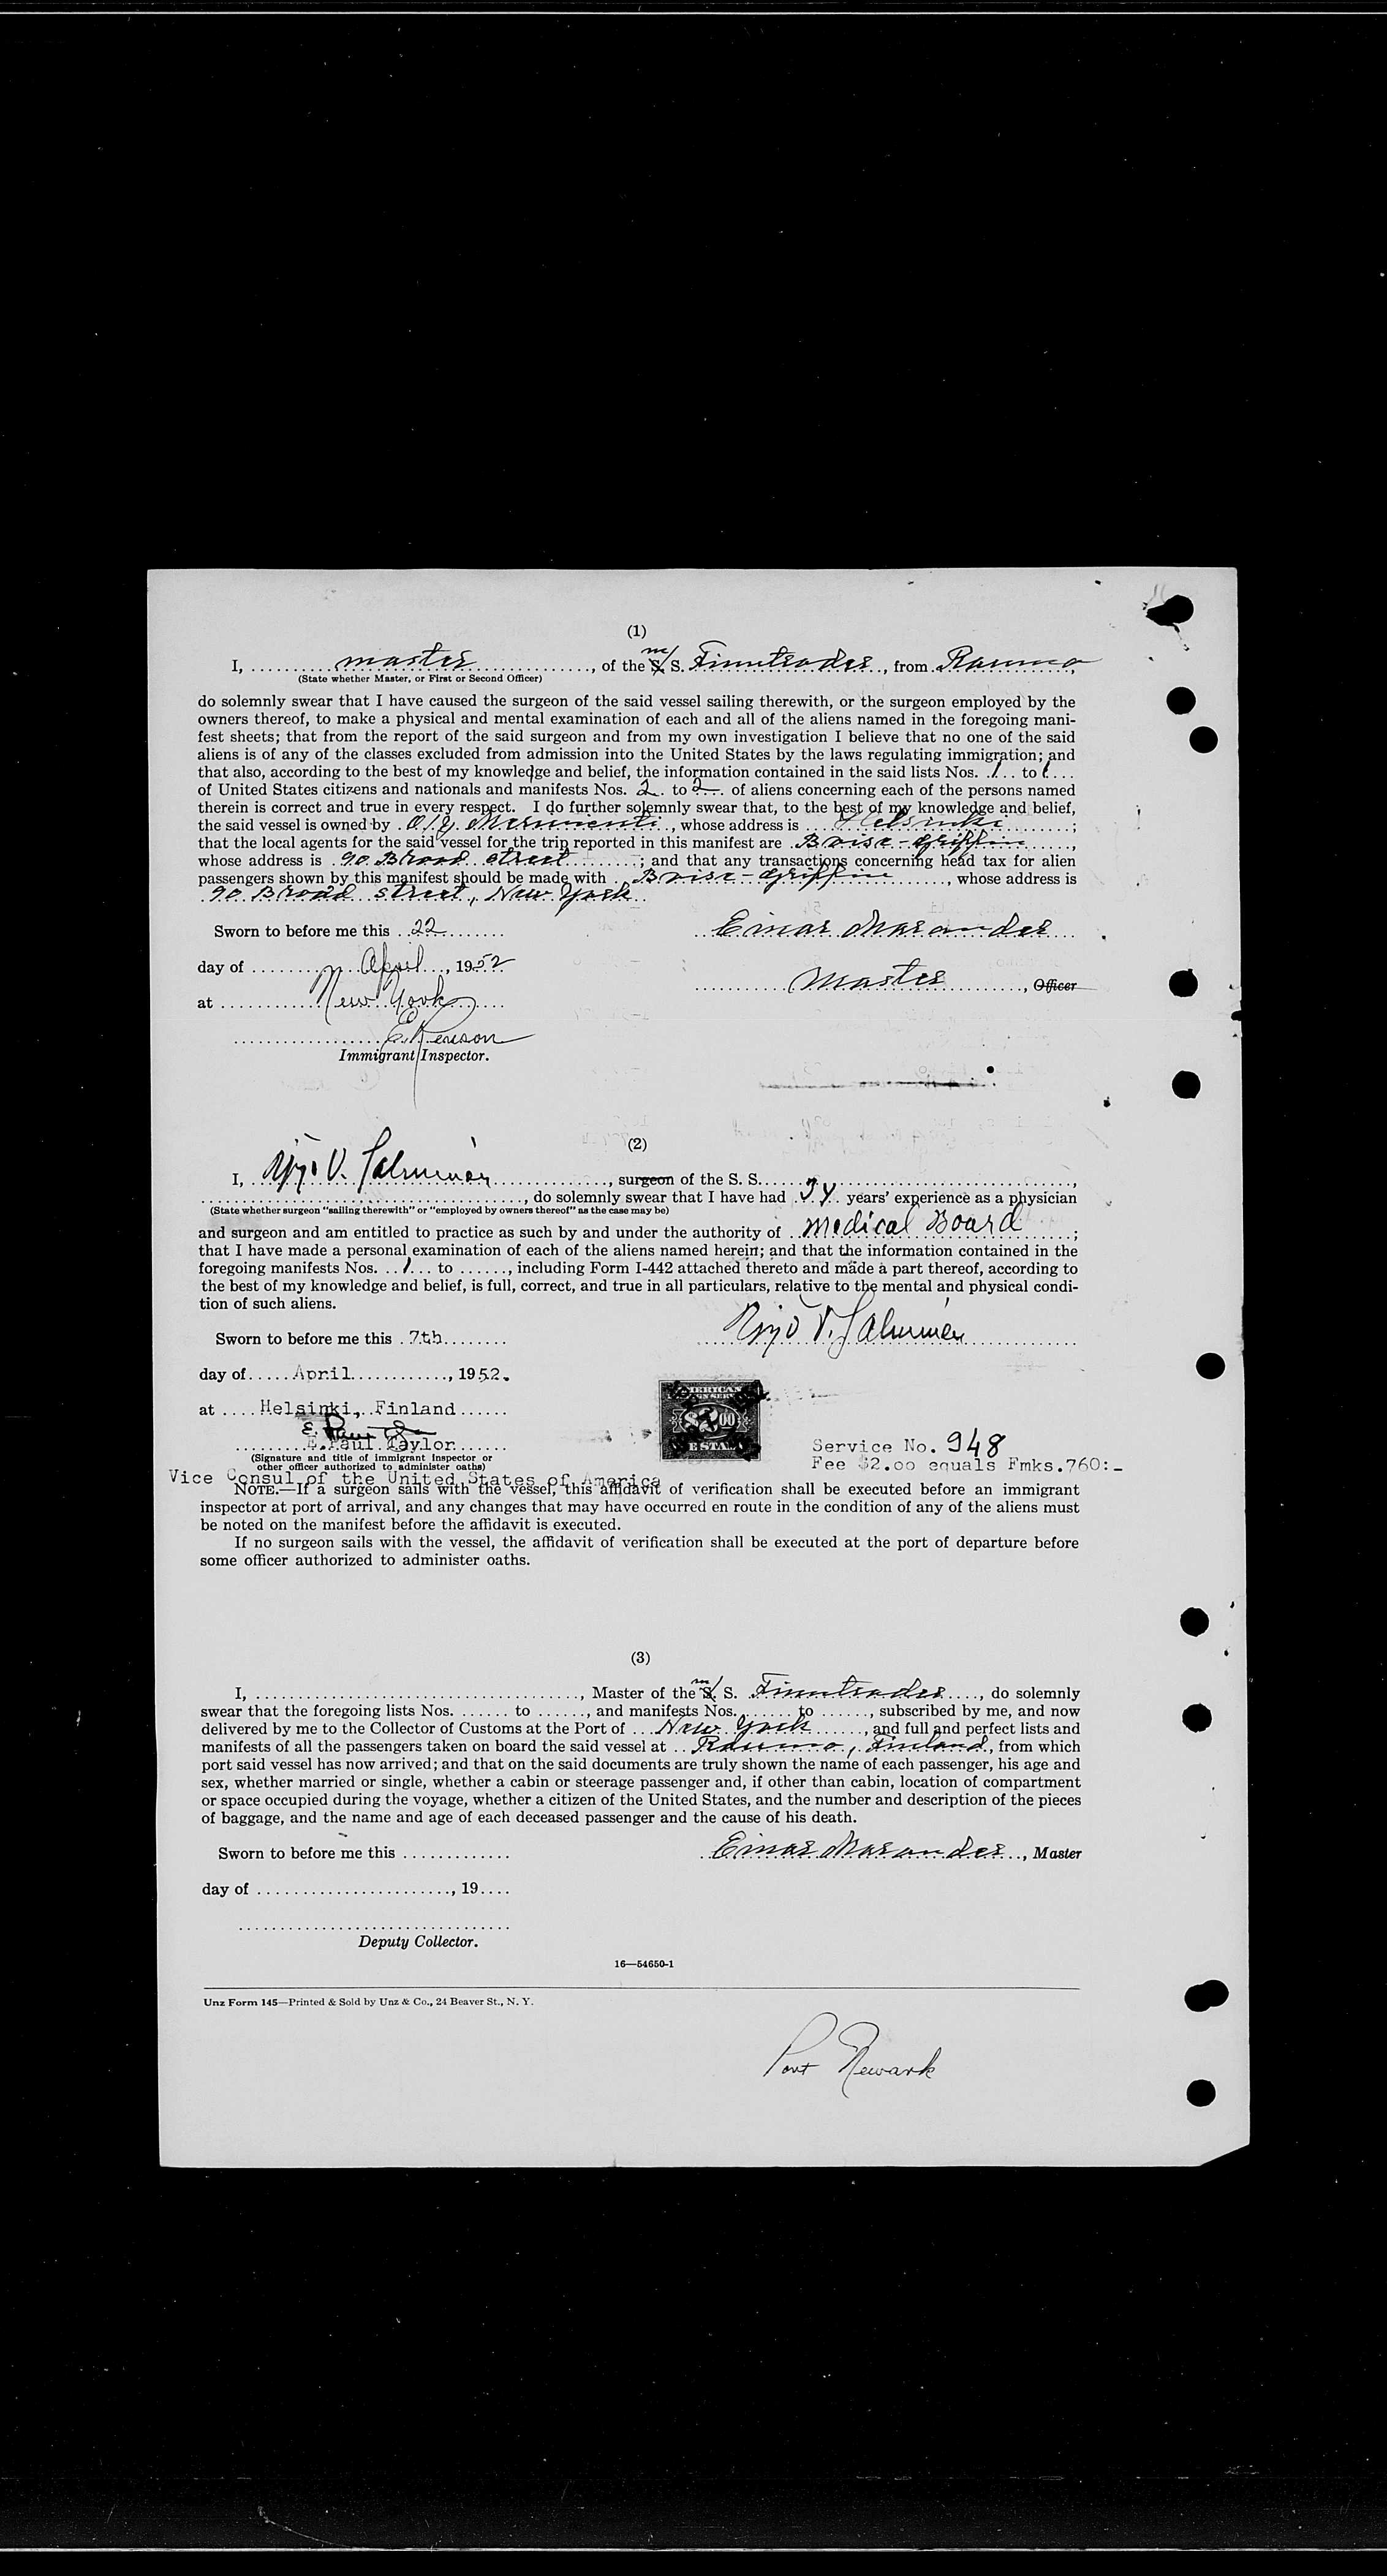 (1)
I, master, of the m/S. Finntrader, from Rauma,
(State whether Master, or First or Second Officer)
do solemnly swear that I have caused the surgeon of the said vessel sailing therewith, or the surgeon employed by the
owners thereof, to make a physical and mental examination of each and all of the aliens named in the foregoing mani-
fest sheets; that from the report of the said surgeon and from my own investigation I believe that no one of the said
aliens is of any of the classes excluded from admission into the United States by the laws regulating immigration; and
that also, according to the best of my knowledge and belief, the information contained in the said lists Nos. 1 to 1
of United States citizens and nationals and manifests Nos. 2 to 2 of aliens concerning each of the persons named
therein is correct and true in every respect. I do further solemnly swear that, to the best of my knowledge and belief,
the said vessel is owned by O/Y. Merivienti, whose address is Helsinki;
that the local agents for the said vessel for the trip reported in this manifest are Boise-Griffin,
whose address is 90 Broad street; and that any transactions concerning head tax for alien
passengers shown by this manifest should be made with Boise-Griffin, whose address is
90 Broad street, New York.
Sworn to before me this 22
Einar Marander
day of April, 1952
Master, Officer
at New York
Immigrant Inspector.
(2)
I, V. Salminen, surgeon of the S. S.
, do solemnly swear that I have had 34 years' experience as a physician
(State whether surgeon "sailing therewith" or "employed by owners thereof" as the case may be)
and surgeon and am entitled to practice as such by and under the authority of Medical Board;
that I have made a personal examination of each of the aliens named herein; and that the information contained in the
foregoing manifests Nos. 1 to ......, including Form I-442 attached thereto and made a part thereof, according to
the best of my knowledge and belief, is full, correct, and true in all particulars, relative to the mental and physical condi-
tion of such aliens.
Sworn to before me this 7th
V. Salminen
day of April, 1952.
at Helsinki, Finland
AMERICAN
$2.00
FEE STAMP
E. Paul Taylor
Service No. 948
(Signature and title of immigrant inspector or
other officer authorized to administer oaths)
Fee $2.00 equals Fmks.760:-
Vice Consul of the United States of America
NOTE.—If a surgeon sails with the vessel, this affidavit of verification shall be executed before an immigrant
inspector at port of arrival, and any changes that may have occurred en route in the condition of any of the aliens must
be noted on the manifest before the affidavit is executed.
If no surgeon sails with the vessel, the affidavit of verification shall be executed at the port of departure before
some officer authorized to administer oaths.
(3)
I, ......, Master of the m/S. Finntrader, do solemnly
swear that the foregoing lists Nos. ...... to ......, and manifests Nos. ...... to ......, subscribed by me, and now
delivered by me to the Collector of Customs at the Port of New York, and full and perfect lists and
manifests of all the passengers taken on board the said vessel at Rauma, Finland, from which
port said vessel has now arrived; and that on the said documents are truly shown the name of each passenger, his age and
sex, whether married or single, whether a cabin or steerage passenger and, if other than cabin, location of compartment
or space occupied during the voyage, whether a citizen of the United States, and the number and description of the pieces
of baggage, and the name and age of each deceased passenger and the cause of his death.
Sworn to before me this
Einar Marander, Master
day of ......, 19....
Deputy Collector.
16—54650-1
Unz Form 145—Printed & Sold by Unz & Co., 24 Beaver St., N. Y.
Port Newark